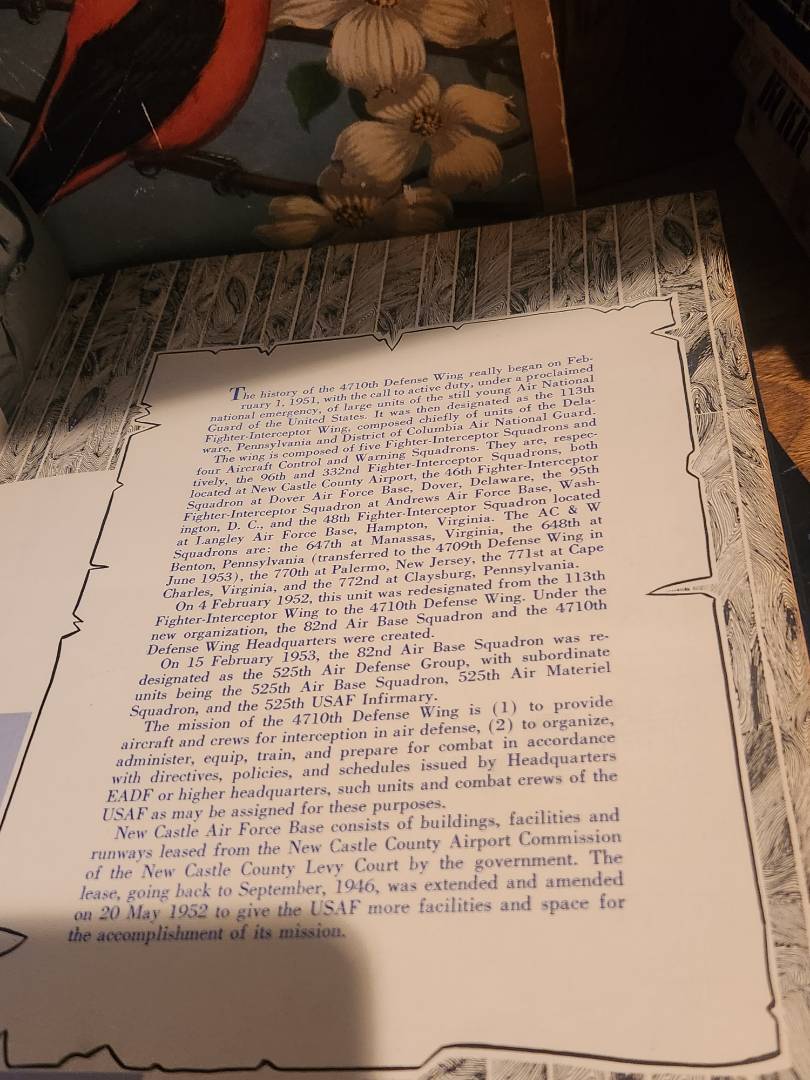 The history of the 4710th Defense Wing really began on Feb-
ruary 1, 1951, with the call to active duty, under a proclaimed
national emergency, of large units of the still young Air National
Guard of the United States. It was then designated as the 113th
Fighter-Interceptor Wing, composed chiefly of units of the Dela-
ware, Pennsylvania and District of Columbia Air National Guard.
The wing is composed of five Fighter-Interceptor Squadrons and
four Aircraft Control and Warning Squadrons. They are, respec-
tively, the 96th and 332nd Fighter-Interceptor Squadrons, both
located at New Castle County Airport, the 46th Fighter-Interceptor
Squadron at Dover Air Force Base, Dover, Delaware, the 95th
Fighter-Interceptor Squadron at Andrews Air Force Base, Wash-
ington, D. C., and the 48th Fighter-Interceptor Squadron located
at Langley Air Force Base, Hampton, Virginia. The AC & W
Squadrons are: the 647th at Manassas, Virginia, the 648th at
Benton, Pennsylvania (transferred to the 4709th Defense Wing in
June 1953), the 770th at Palermo, New Jersey, the 771st at Cape
Charles, Virginia, and the 772nd at Claysburg, Pennsylvania.
On 4 February 1952, this unit was redesignated from the 113th
Fighter-Interceptor Wing to the 4710th Defense Wing. Under the
new organization, the 82nd Air Base Squadron and the 4710th
Defense Wing Headquarters were created.
On 15 February 1953, the 82nd Air Base Squadron was re-
designated as the 525th Air Defense Group, with subordinate
units being the 525th Air Base Squadron, 525th Air Materiel
Squadron, and the 525th USAF Infirmary.
The mission of the 4710th Defense Wing is (1) to provide
aircraft and crews for interception in air defense, (2) to organize,
administer, equip, train, and prepare for combat in accordance
with directives, policies, and schedules issued by Headquarters
EADF or higher headquarters, such units and combat crews of the
USAF as may be assigned for these purposes.
New Castle Air Force Base consists of buildings, facilities and
runways leased from the New Castle County Airport Commission
of the New Castle County Levy Court by the government. The
lease, going back to September, 1946, was extended and amended
on 20 May 1952 to give the USAF more facilities and space for
the accomplishment of its mission.